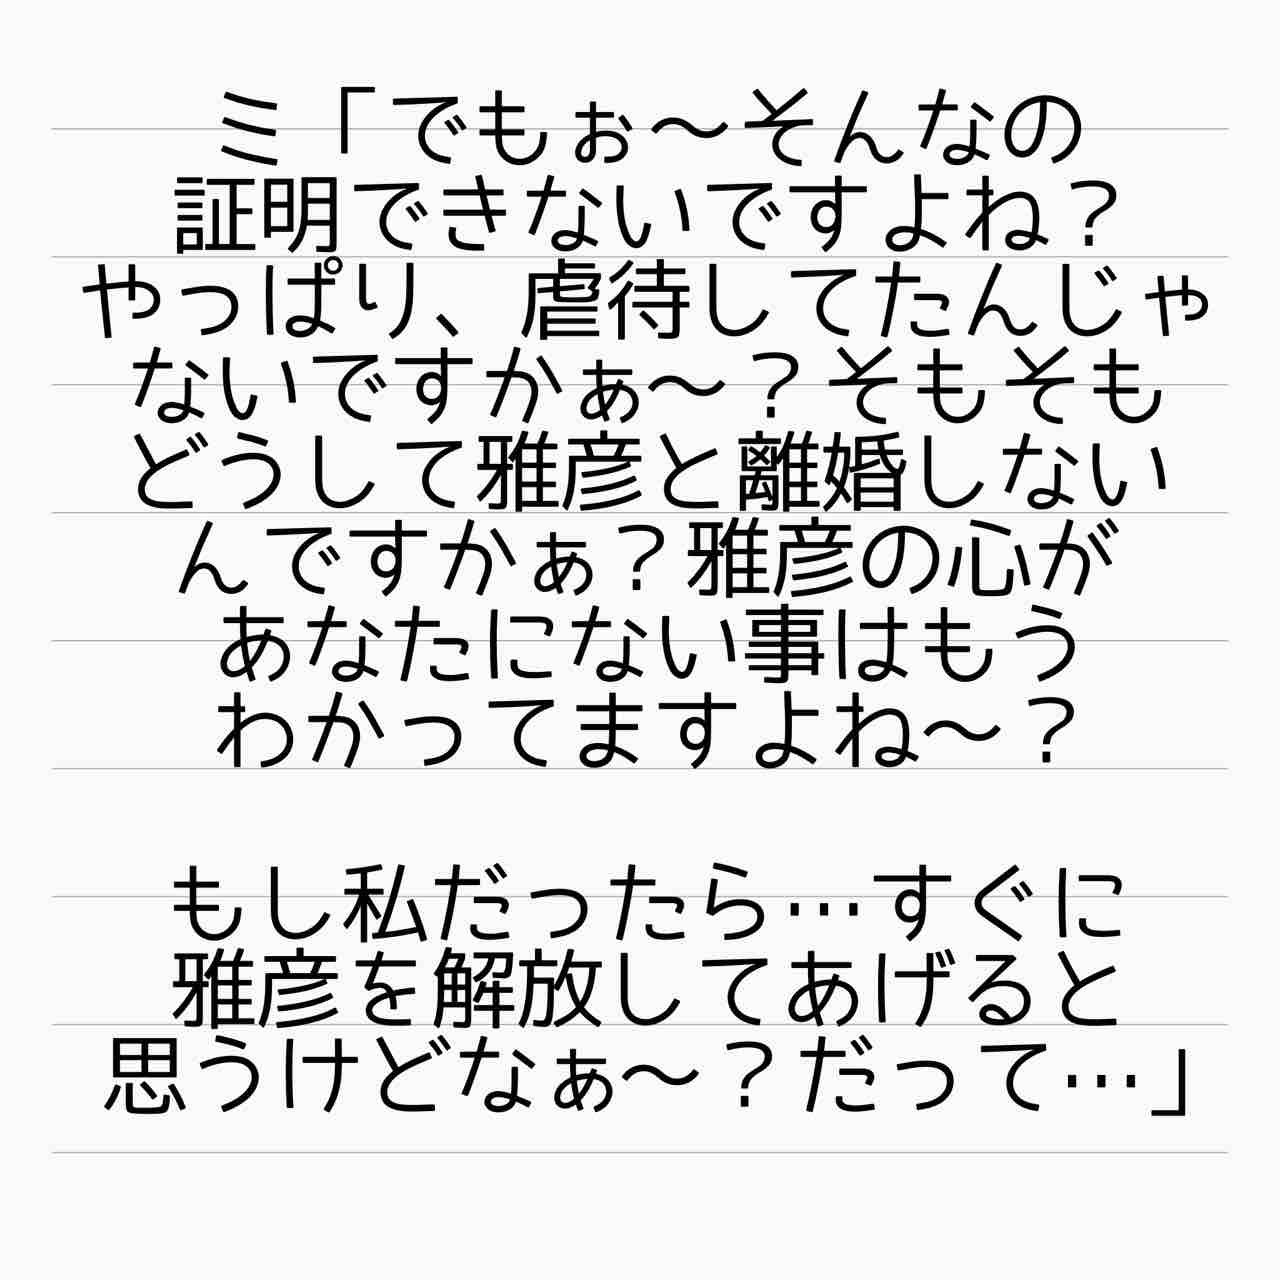 ミ「でもぉ〜そんなの
証明できないですよね？
やっぱり、虐待してたんじゃ
ないですかぁ〜？そもそも
どうして雅彦と離婚しない
んですかぁ？雅彦の心が
あなたにない事はもう
わかってますよね〜？
もし私だったら…すぐに
雅彦を解放してあげると
思うけどなぁ〜？だって…」